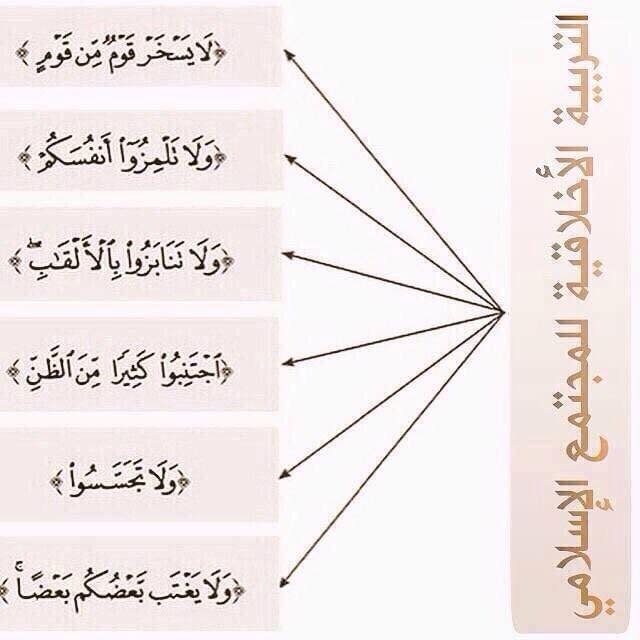 التربية الأخلاقية للمجتمع الإسلامي
﴿لَا يَسْخَرْ قَوْمٌ مِّن قَوْمٍ﴾
﴿وَلَا تَلْمِزُوٓا۟ أَنفُسَكُمْ﴾
﴿وَلَا تَنَابَزُوا۟ بِٱلْأَلْقَٰبِ ۖ﴾
﴿ٱجْتَنِبُوا۟ كَثِيرًا مِّنَ ٱلظَّنِّ﴾
﴿وَلَا تَجَسَّسُوا۟﴾
﴿وَلَا يَغْتَب بَّعْضُكُم بَعْضًا ۚ﴾